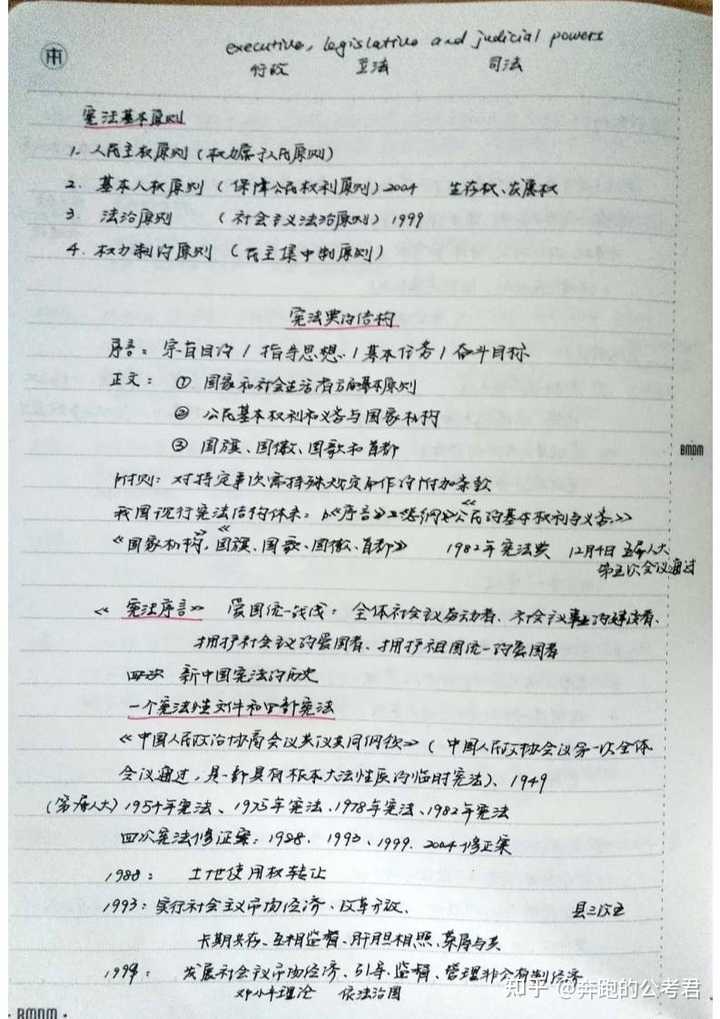 executive, legislative and judicial powers
行政 立法 司法
宪法基本原则
1. 人民主权原则（权力属于人民原则）
2. 基本人权原则（保障公民权利原则）2004 生存权、发展权
3. 法治原则（社会主义法治原则）1999
4. 权力制约原则（民主集中制原则）
宪法典的结构
序言：宗旨目的 / 指导思想 / 基本任务 / 奋斗目标
正文：① 国家和社会生活诸方面基本原则
② 公民基本权利和义务与国家机构
③ 国旗、国徽、国歌和首都
附则：对特定事项需特殊规定而作的附加条款
我国现行宪法结构体系：《序言》《总纲》《公民的基本权利与义务》
《国家机构》《国旗、国歌、国徽、首都》 1982年宪法典 12月4日 五届人大
第五次会议通过
《宪法序言》 爱国统一战线：全体社会主义劳动者、社会主义事业的建设者、
拥护社会主义的爱国者、拥护祖国统一的爱国者
四次 新中国宪法的历史
一个宪法性文件和四部宪法
《中国人民政治协商会议共同纲领》（中国人民政协会议第一次全体
会议通过，是一部具有根本大法性质的临时宪法）、1949
（第一届人大）1954年宪法、1975年宪法、1978年宪法、1982年宪法
四次宪法修正案：1988、1993、1999、2004修正案
1988：土地使用权转让
1993：实行社会主义市场经济、改革开放、 县三改五
长期共存、互相监督、肝胆相照、荣辱与共
1999：发展社会主义市场经济、引导、监督、管理非公有制经济
邓小平理论 依法治国
知乎 @奔跑的公考君
BMDM
BMDM